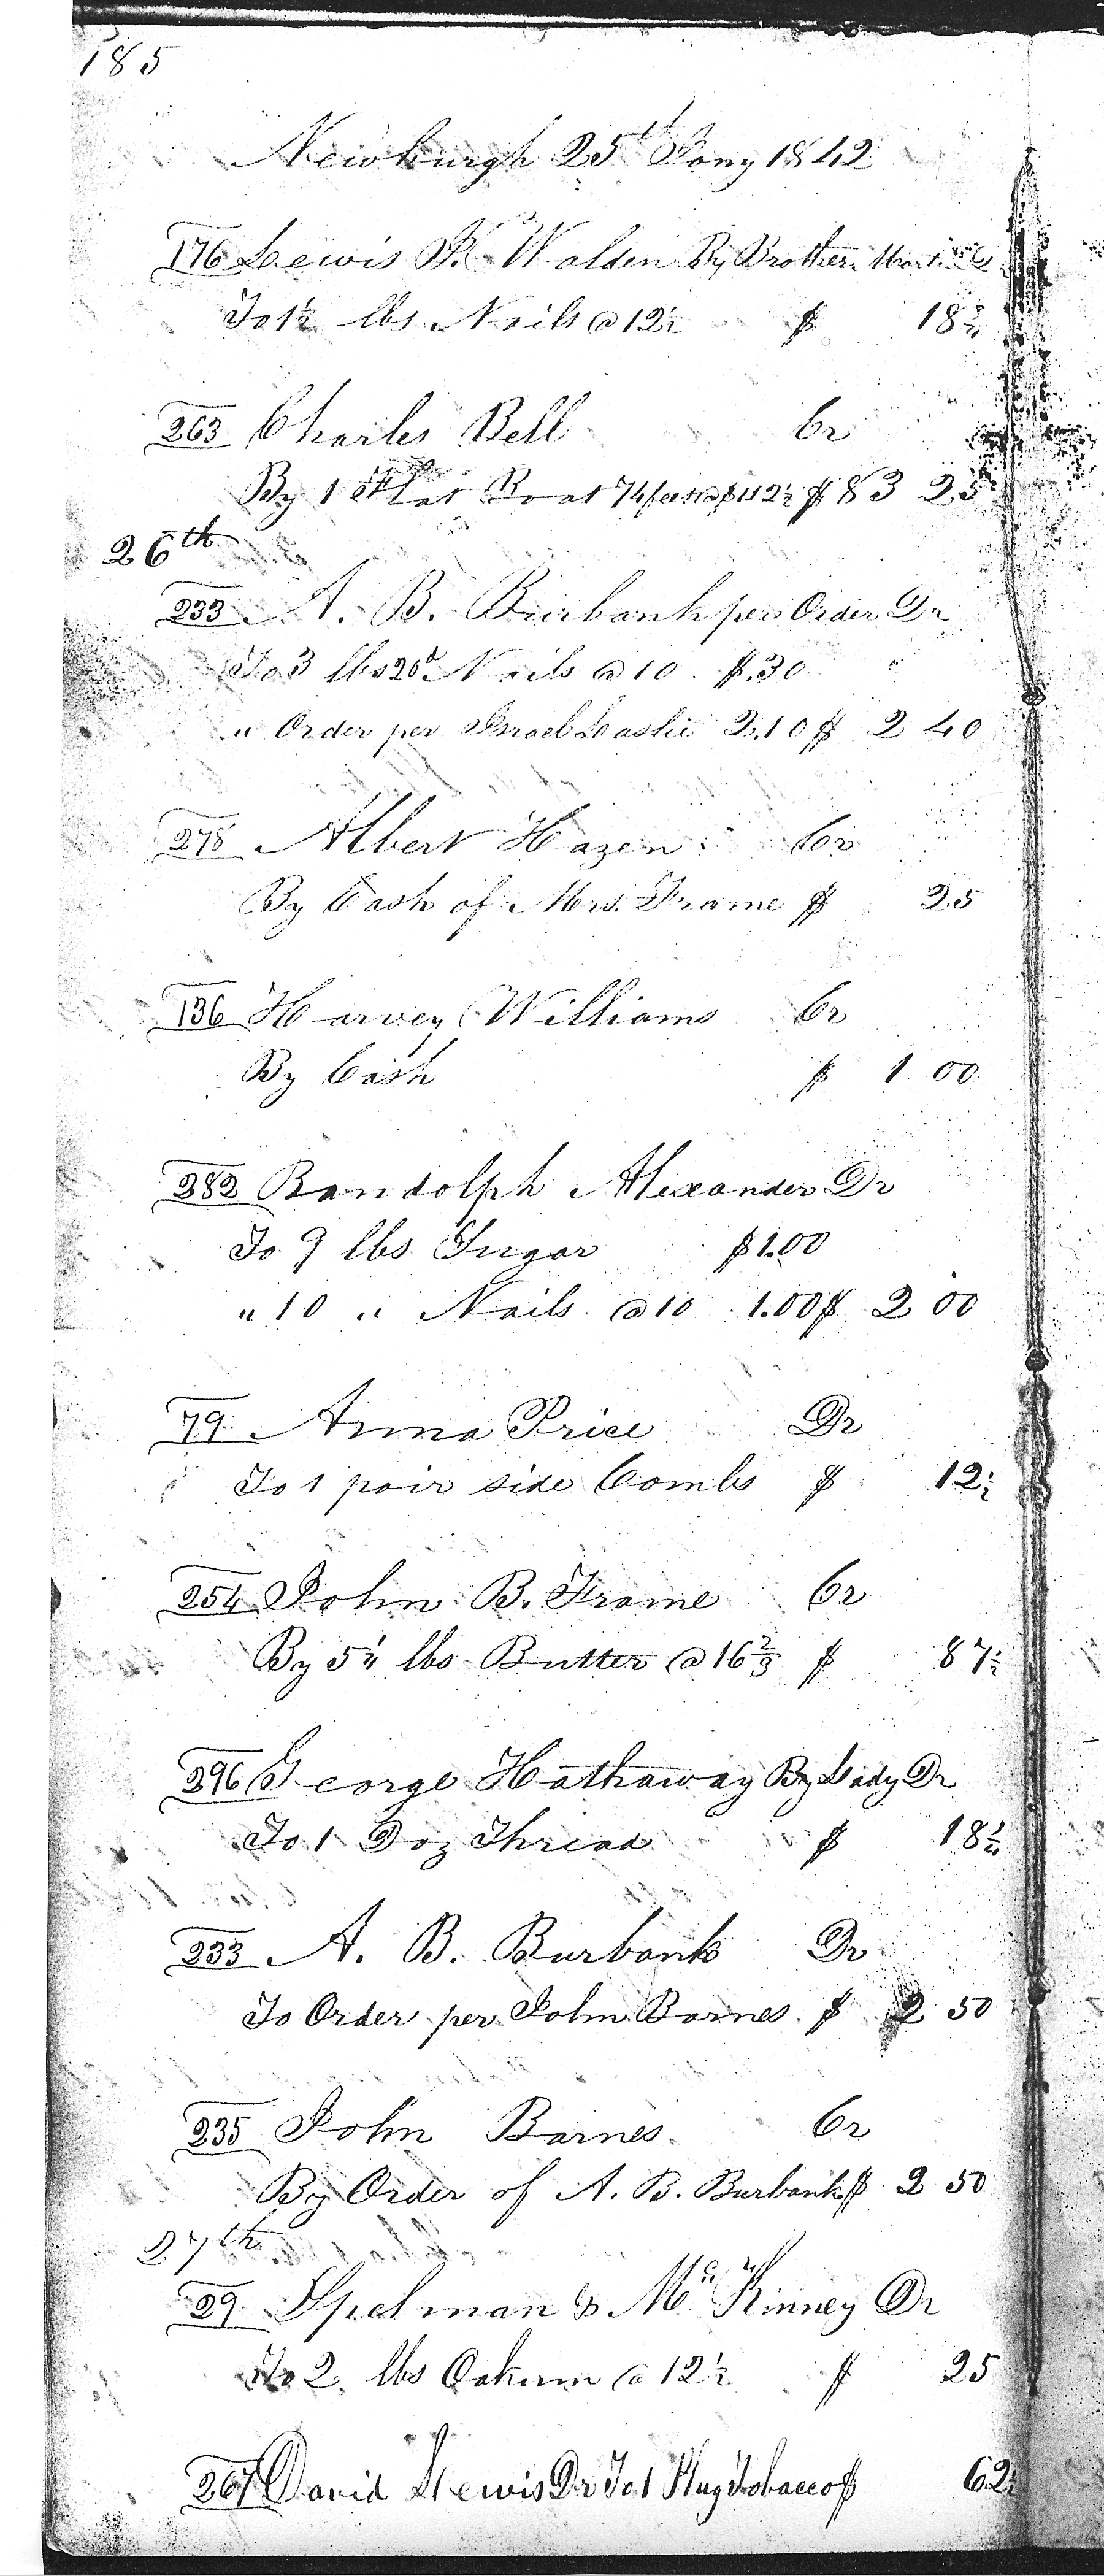 185
Newburgh 25th Jany 1842
176 Lewis K. Walden By Brother
To 1½ lbs Nails @ 12½ $ 18¾
263 Charles Bell Cr
By 1 Flat Boat 74 feet @ $1.12½ $ 83 25
26th
233 A. B. Burbank per Order Dr
To 3 lbs 20d Nails @ 10 $.30
" Order per Israel 2.10 $ 2 40
278 Albert Hazen Cr
By Cash of Mrs. Frame $ 25
136 Harvey Williams Cr
By Cash $ 1 00
282 Randolph Alexander Dr
To 9 lbs Sugar $1.00
" 10 " Nails @ 10 1.00 $ 2 00
79 Anna Price Dr
To 1 pair side Combs $ 12½
254 John B. Frame Cr
By 5¼ lbs Butter @ 16⅔ $ 87½
296 George Hathaway By Lady Dr
To 1 Doz Thread $ 18¾
233 A. B. Burbank Dr
To Order per John Barnes $ 2 50
235 John Barnes Cr
By Order of A. B. Burbank $ 2 50
27th
29 Spelman & McKinney Dr
To 2 lbs Oakum @ 12½ $ 25
267 David Lewis Dr To 1 Plug Tobacco $ 62½